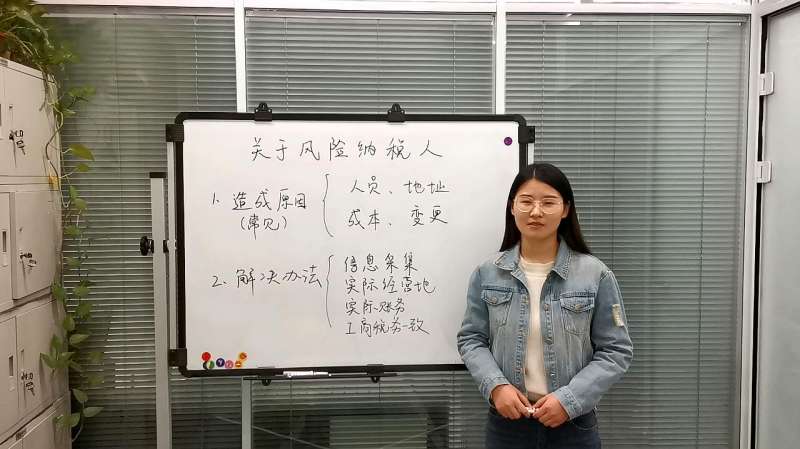 关于风险纳税人
1. 造成原因
(常见)
人员、地址
成本、变更
2. 解决办法
信息采集
实际经营地
实际账务
工商税务一致